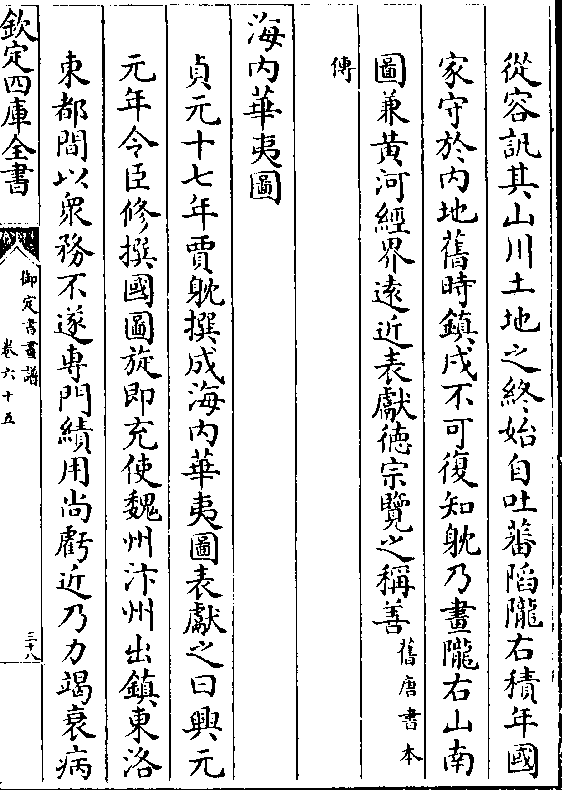 從容訊其山川土地之終始自吐蕃陷隴右積年國
家守於内地舊時鎮戍不可復知躭乃畫隴右山南
圖兼黄河經界逺近表獻徳宗覽之稱善舊唐書本
傳
海内華夷圖
貞元十七年賈躭撰成海内華夷圖表獻之曰興元
元年令臣修撰國圖旋即充使魏州汴州出鎮東洛
東都間以衆務不遂專門績用尚虧近乃力竭衰病
欽定四庫全書
御定書畫譜
卷六十五
三十八